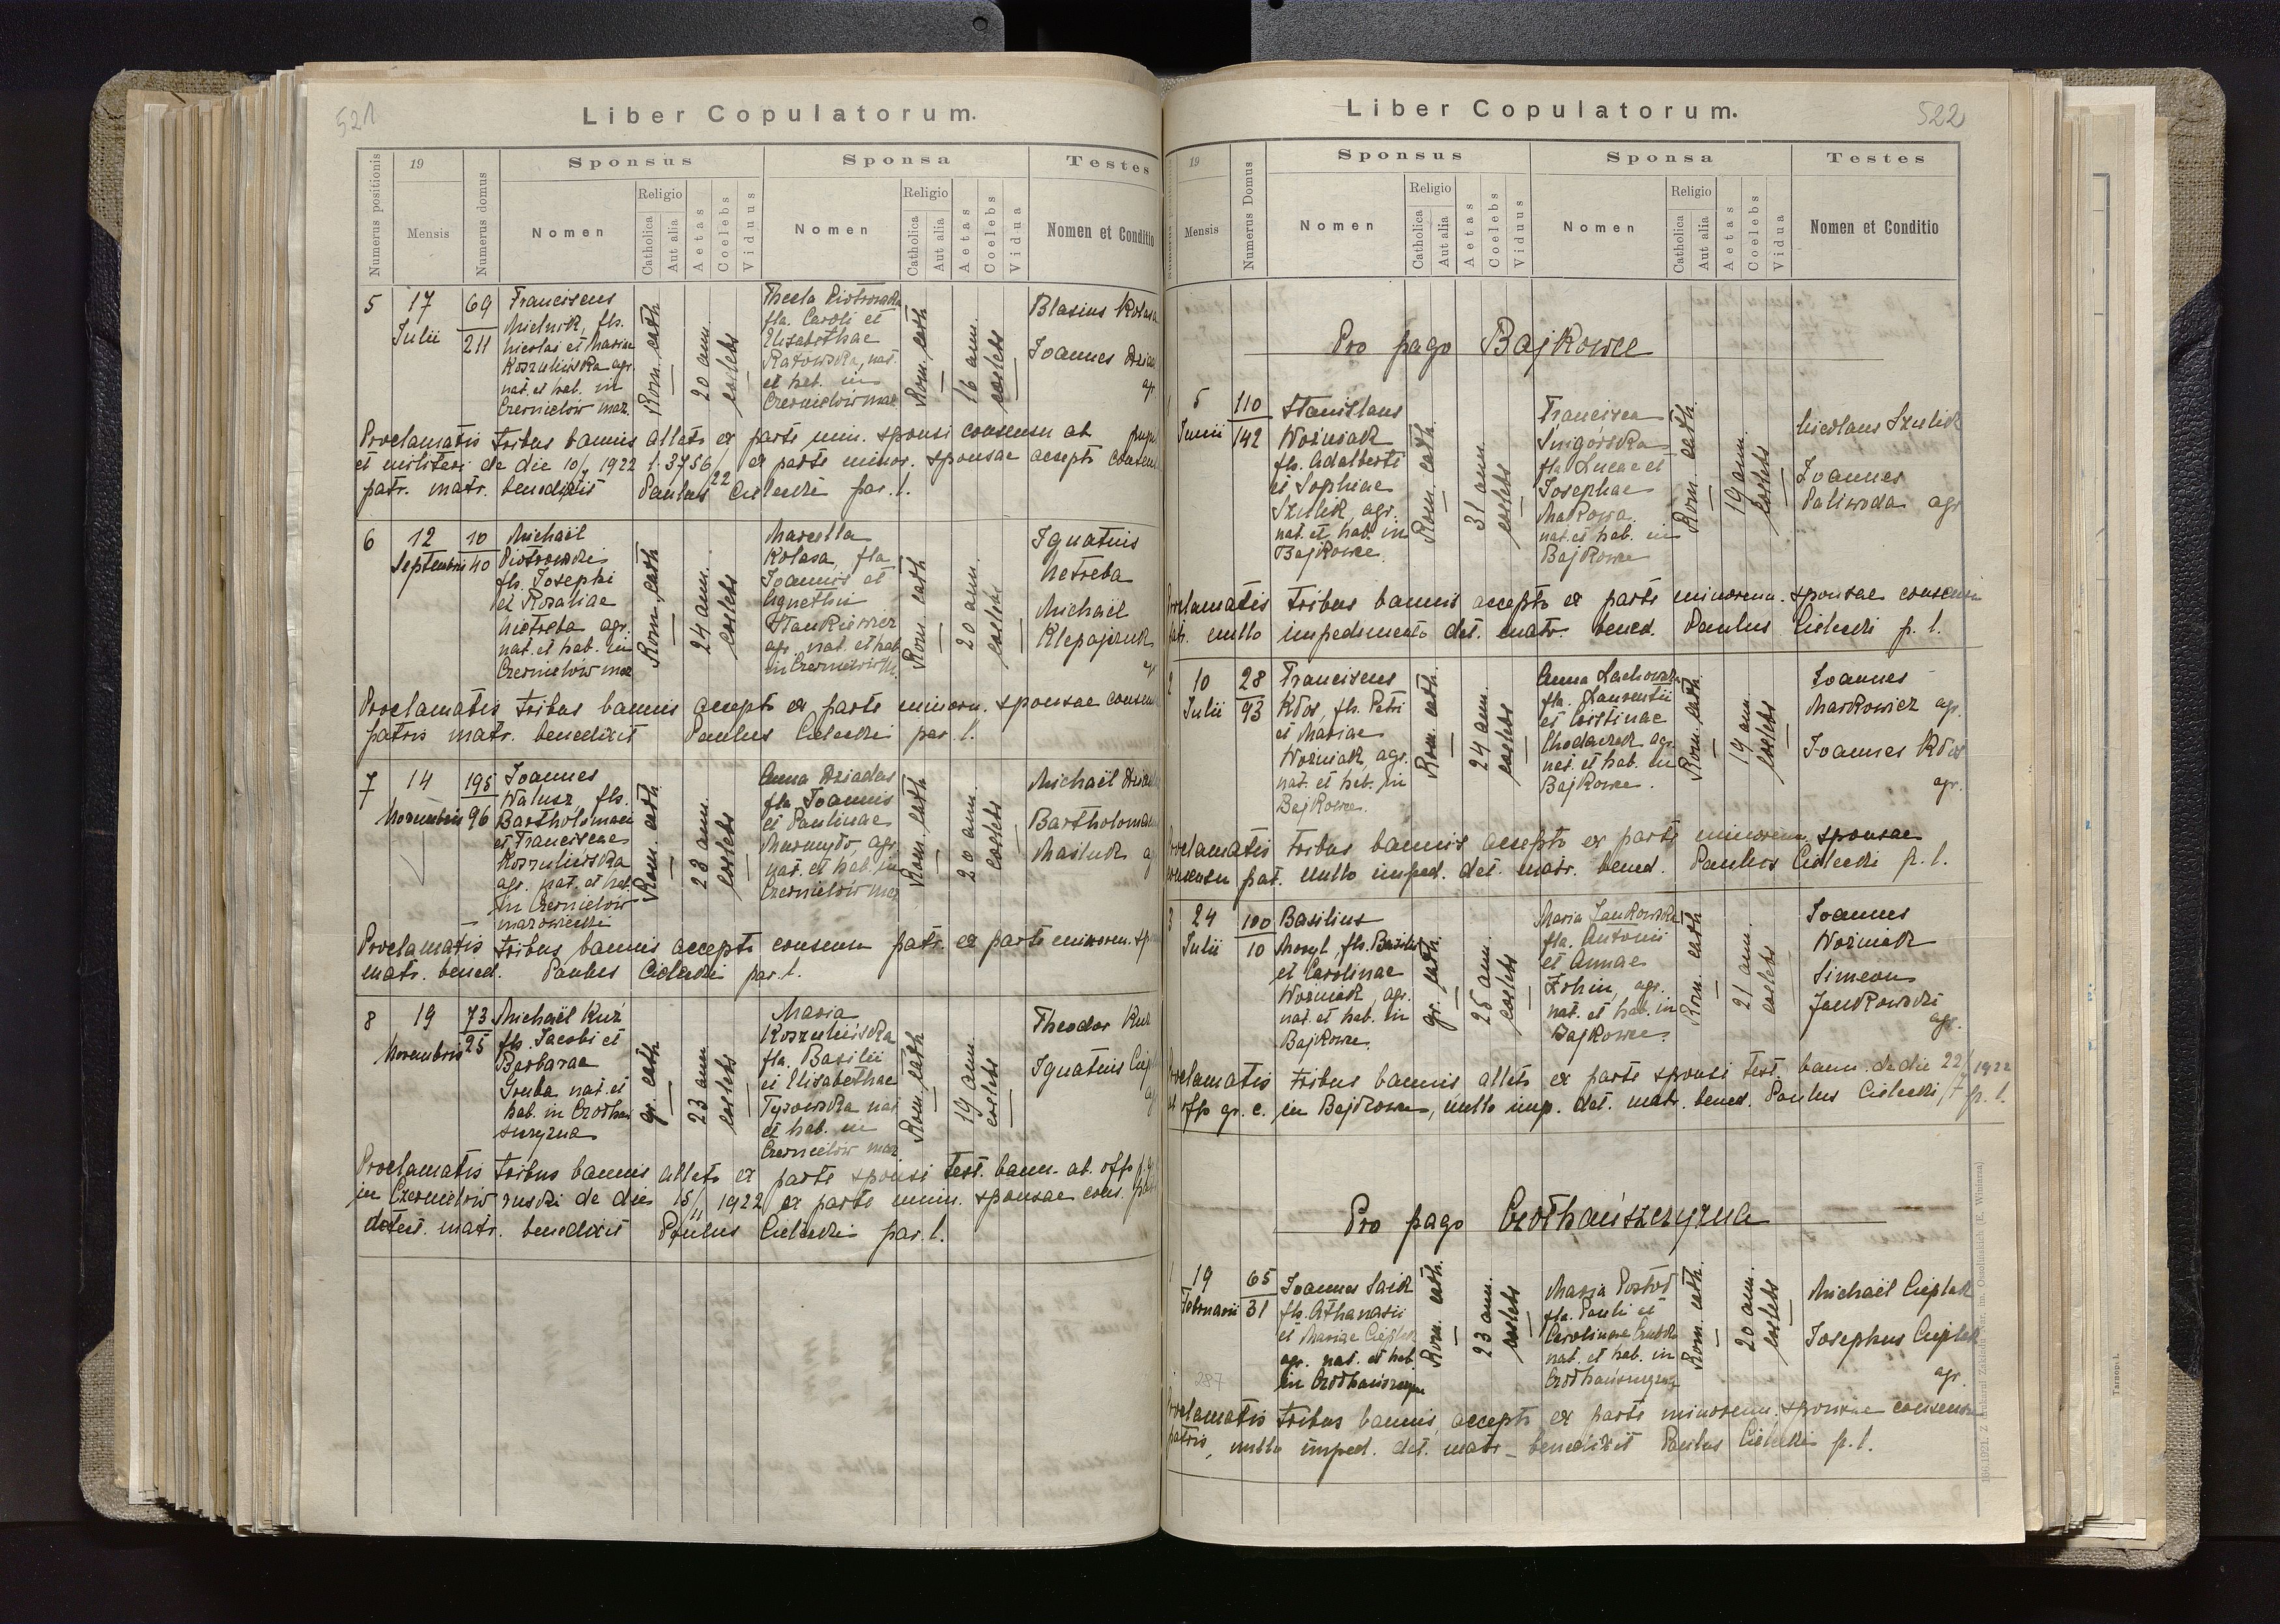 521
Liber Copulatorum.
Numerus positionis
19
Mensis
Numerus domus
Sponsus
Nomen
Religio
Catholica
Aut alia
Aetas
Coelebs
Viduus
Sponsa
Nomen
Religio
Catholica
Aut alia
Aetas
Coelebs
Vidua
Testes
Nomen et Conditio
5
17
Julii
69
211
Franciscus
Mielnik, fls.
Nicolai et Mariae
Koszulińska agr.
nat. et hab. in
Czernielów maz.
Rom. cath
20 ann.
coelebs
Thecla Piotrowska
fla. Caroli et
Elisabethae
Ratowska, nat.
et hab. in
Czernielów maz
Rom. cath
16 ann.
coelebs
Blasius Kolasa
Joannes
agr
Proclamatis tribus bannis allato ex parte min. sponsi consensu ab
et militari de die 10/7 1922 l. 3756/22 ex parte minor. sponsae accepto consensu
patr. matr. benedixit Paulus Cielecki par. l.
6
12
Septembris
10
40
Michaël
Piotrowski
fls. Josephi
et Rosaliae
Nietreba agr.
nat. et hab. in
Czernielów maz
Rom. cath
24 ann.
coelebs
Marcella
Kolasa, fla
Joannis et
Agnethis
Stankiewicz
agr. nat. et hab
in Czernielów M.
Rom. cath
20 ann.
coelebs
Ignatius
Netreba
Michaël
Klepajczuk
agr
Proclamatis tribus bannis accepto ex parte minoren. sponsae consensu
patris matr. benedixit Paulus Cielecki par. l.
7
14
Novembris
195
96
Joannes
Walusz, fls.
Bartholomaei
et Franciscae
Koszulińska
agr. nat. et hab.
in Czernielów
mazowiecki
Rom. cath
23 ann.
coelebs
Anna Dziadas
fla. Joannis
et Paulinae
Murmyło, agr.
nat. et hab. in
Czernielów maz
Rom. cath
20 ann.
coelebs
Michaël
Bartholomaeus
Maśluk
Proclamatis tribus bannis accepto consensu patr. ex parte minoren.
matr. bened. Paulus Cielecki par. l.
8
19
Novembris
73
25
Michaël Kuź
fls. Jacobi et
Barbarae
Gruba nat. et
hab. in Czołhań
szczyzna
gr. cath
23 ann
coelebs
Maria
Koszulińska
fla. Basilii
et Elisabethae
Tyrowska nat
et hab. in
Czernielów maz
Rom. cath
19 ann.
coelebs
Theodor Kuź
Ignatius
Proclamatis tribus bannis allato ex parte sponsi test. bann. ab. offo
in Czernielów ruski de die 15/11 1922 ex parte minn. sponsae cons.
matr. benedixit Paulus Cielecki par. l.
522
Liber Copulatorum.
Numerus positionis
19
Mensis
Numerus Domus
Sponsus
Nomen
Religio
Catholica
Aut alia
Aetas
Coelebs
Viduus
Sponsa
Nomen
Religio
Catholica
Aut alia
Aetas
Coelebs
Vidua
Testes
Nomen et Conditio
Pro pago Bajkowce
1
5
Junii
110
142
Stanislaus
Woźniak
fls. Adalberti
et Sophiae
Szulik, agr.
nat. et hab. in
Bajkowce.
Rom. cath.
31 ann.
coelebs
Francisca
Śnigórska
fla Lucae et
Josephae
Makowa
nat. et hab. in
Bajkowce
Rom. cath.
19 ann.
coelebs
Nicolaus Szulik
Joannes
Paliwoda agr
Proclamatis tribus bannis accepto ex parte minorenn. sponsae consensu
patr. nullo impedimento det. matr. bened. Paulus Cielecki p. l.
2
10
Julii
28
93
Franciscus
Kłos, fls. Petri
et Mariae
Woźniak, agr.
nat. et hab. in
Bajkowce.
Rom. cath.
24 ann.
coelebs
Anna
fla. Laurentii
et Cristinae
Chodaczek agr.
nat. et hab. in
Bajkowce.
Rom. cath.
19 ann.
coelebs
Joannes
Markowicz agr.
Joannes Kłos
agr.
Proclamatis tribus bannis accepto ex parte minorenn. sponsae
consensu pat. nullo imped. det. matr. bened. Paulus Cielecki p. l.
3
24
Julii
100
10
Basilius
fls. Basilii
et Carolinae
Woźniak, agr.
nat. et hab. in
Bajkowce.
gr. cath.
25 ann.
coelebs
Maria Jankowska
fla. Antonii
et Annae
agr.
nat. et hab. in
Bajkowce.
Rom. cath
21 ann.
coelebs
Joannes
Woźniak
Simeon
Jankowski
agr.
Proclamatis tribus bannis allato ex parte sponsi test. bann. de die 22/7 1922
ab offo gr. c. in Bajkowce, nullo imp. det. matr. bened. Paulus Cielecki p. l.
Pro pago Czołhańszczyzna
1
19
Februarii
65
31
Joannes Saik
fls. Athanasii
et Mariae Cieplak
agr. nat. et hab
in Czołhańszczyzna
Rom. cath.
23 ann.
coelebs
Maria
fla. Pauli et
Carolinae
nat. et hab. in
Czołhańszczyzna
Rom. cath.
20 ann.
coelebs
Michaël Cieplak
Josephus Cieplak
agr.
287
Proclamatis tribus bannis, accepto ex parte minorenn. sponsae consensu
patris, nullo imped. det. matr. benedixit Paulus Cielecki p. l.